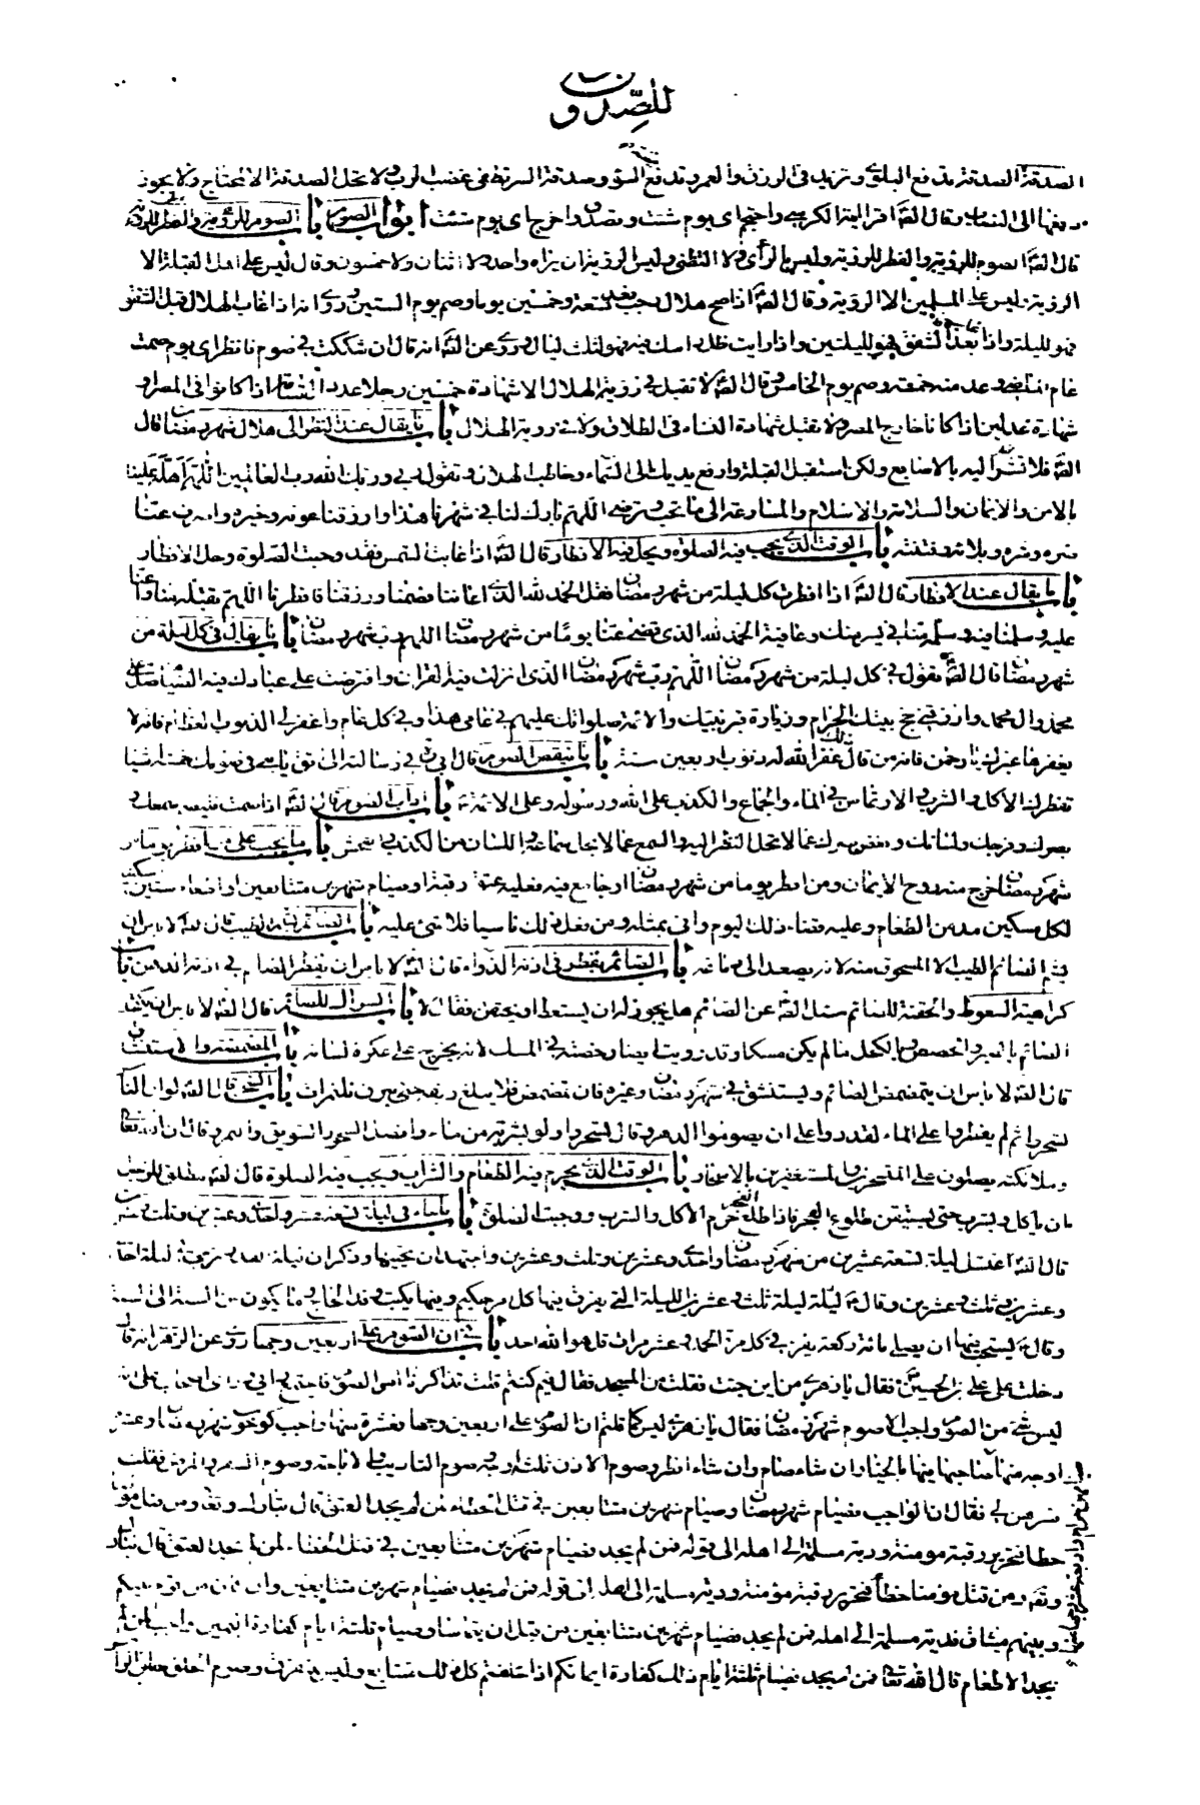 للصدوق
الصدقة الصدقة تدفع البلوى وتزيد في الرزق والعمر وتدفع السوء وصدقة السر تطفى غضب الرب ولا تحل الصدقة الا لمحتاج ولا يجوز
دفعها الى النصاب وقال افرأ اية الكرسي واحتجم اي يوم شئت وتصدق واخرج اي يوم شئت ابواب الصوم باب الصوم للرؤية والفطر للرؤية
قال الصوم للرؤية والفطر للرؤية وليس بالرأى ولا التظنى وليس الرؤية ان يراه واحد ولا اثنان ولا خمسون وقال ليس على اهل القبلة الا
الرؤية ليس على المسلمين الا الرؤية وقال اذا صح هلال رجب فعد تسعة وخمسين يوما وصم يوم الستين وروى انه اذا غاب الهلال قبل الشفق
فهو لليلة واذا غاب بعد الشفق فهو لليلتين واذا رايت ظل راسك فيه فهو لثلث ليال وروى عن انه قال ان شككت في صوم فانظر اي يوم صمت
عام الماضي وعد منه خمسة وصم يوم الخامس وقال لا تقبل في رؤية الهلال الا شهادة خمسين رجلا عدد القسامة اذا كانوا في المصر او
شهادة عدلين اذا كانا خارج المصر ولا تقبل شهادة النساء في الطلاق ولا في رؤية الهلال باب ما يقال عند النظر الى هلال شهر رمضان قال
فلا تشر اليه بالاصابع ولكن استقبل القبلة وارفع يديك الى السماء وخاطب الهلال وتقول ربي وربك الله رب العالمين اللهم اهله علينا
بالامن والايمان والسلامة والاسلام والمسارعة الى ما تحب وترضى اللهم بارك لنا في شهرنا هذا وارزقنا عونه وخيره واصرف عنا
ضره وشره وبلائه وفتنته باب الوقت الذي يجب فيه الصلوة ويحل فيه الافطار قال اذا غابت الشمس فقد وجبت الصلوة وحل الافطار
باب ما يقال عند الافطار قال اذا افطرت كل ليلة من شهر رمضان فقل الحمد لله الذي اعاننا فصمنا ورزقنا فافطرنا اللهم تقبله منا واعنا
عليه وسلمنا فيه وسلمه منا في يسر منك وعافية الحمد لله الذي قضى عنا يوما من شهر رمضان اللهم رب شهر رمضان باب ما يقال في كل ليلة من
شهر رمضان قال تقول في كل ليلة من شهر رمضان اللهم رب شهر رمضان الذي انزلت فيه القران وافترضت على عبادك فيه الصيام صل على
محمد وال محمد وارزقني حج بيتك الحرام وزيارة قبر نبيك والائمة صلواتك عليهم في عامي هذا وفي كل عام واغفر لي الذنوب العظام فانه لا
يغفرها غيرك يا رحمن فانه من قال ذلك غفر الله له ذنوب اربعين سنة باب ما ينقض الصوم قال ابي في رسالته الى اتق يا بني في صومك خمسة اشيا
تفطرك الاكل والشرب والارتماس في الماء والجماع والكذب على الله ورسوله وعلى الائمة باب اداب الصوم قال اذا صمت فليصم سمعك و
بصرك وفرجك ولسانك وتغض بصرك عما لا يحل النظر اليه والسمع عما لا يحل استماعه اللسان من الكذب والفحش باب ما يجب على من افطر يوما من
شهر رمضان خرج منه روح الايمان ومن افطر يوما من شهر رمضان او جامع فيه فعليه عتق رقبة او صيام شهرين متتابعين او اطعام ستين مسكينا
لكل مسكين مد من الطعام وعليه قضاء ذلك اليوم وانى بمثله ومن فعل ذلك ناسيا فلا شئ عليه باب الصائم يشم الطيب قال لا باس ان
يشم الصائم الطيب الا المسحوق منه لانه يصعد الى دماغه باب الصائم يقطر في اذنه الدواء قال لا باس ان يقطر الصائم في اذنه الدهن باب
كراهية السعوط والحقنة للصائم سئل عن الصائم هل يجوز له ان يستعط او يحتقن فقال لا باب السواك للصائم قال لا باس ان يكتحل
الصائم بالصبر والحضض وبالكحل ما لم يكن مسكا وقد رويت ايضا رخصة في المسك لانه يخرج على عكرة لسانه باب المضمضة والاستنشاق
قال لا باس ان يتمضمض الصائم ويستنشق في شهر رمضان وغيره فان تمضمض فلا يبلع ريقه حتى يبزق ثلث مرات باب السحور قال لو ان الناس
تسحروا ثم لم يفطروا على الماء لقدروا على ان يصوموا الدهر وقال تسحروا ولو بشربة من ماء وافضل السحور السويق والتمر وقال ان الله تعالى
وملائكته يصلون على المتسحرين والمستغفرين بالاسحار باب الوقت الذي يحرم فيه الطعام والشراب ويجب فيه الصلوة قال مطلق للرجل
ان ياكل ويشرب حتى يستيقن طلوع الفجر فاذا طلع الفجر حرم الاكل والشرب ووجبت الصلوة باب ما جاء في ليلة تسعة عشر واحدى وعشرين وثلث وعشرين
قال اغتسل ليلة تسعة عشر من شهر رمضان واحدى وعشرين وثلث وعشرين واجتهد ان تحييها وذكر ان ليلة القدر ترجى ليلة احدى
وعشرين وثلث وعشرين وقال ليلة ثلث وعشرين الليلة التي يفرق فيها كل امر حكيم وفيها يكتب وفد الحاج وما يكون من السنة الى السنة
وقال يستحب فيها ان يصلى مائة ركعة يقرء في كل ركعة الحمد وعشر مرات قل هو الله احد باب ان الصوم على اربعين وجها روى عن الزهري انه قال
دخلت على علي بن الحسين فقال يا زهري من اين جئت فقلت من المسجد فقال فيم كنتم قلت تذاكرنا امر الصوم فاجتمع رائي وراي اصحابي على انه
ليس شئ من الصوم واجب الا صوم شهر رمضان فقال يا زهري ليس كما قلتم ان الصوم على اربعين وجها فعشرة منها واجب كوجوب شهر رمضان وعشر
اوجه منها صاحبها فيها بالخيار ان شاء صام وان شاء افطر وصوم الاذن ثلثة اوجه صوم التاديب والاباحة وصوم السفر والمرض فقلت
فسرهن لي فقال اما الواجب فصيام شهر رمضان وصيام شهرين متتابعين في قتل الخطاء لمن لم يجد العتق قال تبارك وتعالى ومن قتل مؤمنا
خطا فتحرير رقبة مؤمنة ودية مسلمة الى اهله الى قوله فمن لم يجد فصيام شهرين متتابعين في قتل الخطاء لمن لم يجد العتق قال تبارك
وتعالى ومن قتل مؤمنا خطأ فتحرير رقبة مؤمنة ودية مسلمة الى اهله الى قوله فمن لم يجد فصيام شهرين متتابعين وان كان من قوم بينكم
وبينهم ميثاق فدية مسلمة الى اهله فمن لم يجد فصيام شهرين متتابعين من قبل ان يتماسا وصيام ثلثة ايام كفارة اليمين واجب لمن لم
يجد الاطعام قال الله تعالى فمن لم يجد فصيام ثلثة ايام ذلك كفارة ايمانكم اذا حلفتم كل ذلك متتابع وليس بمتفرق وصوم الحلق حلق الراس